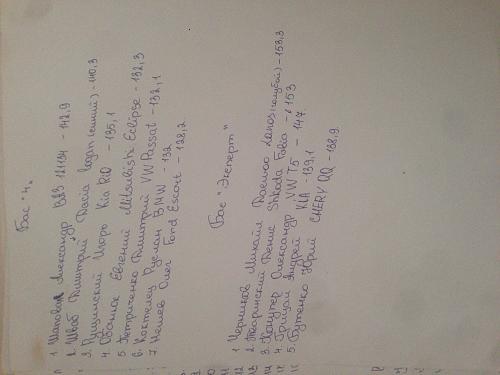 Бас "4"
1 Шаповал Александр ВАЗ 21134 - 142,9
2. Швед Дмитрий Dacia Logan (синий) - 140,3
3. Пущинский Игорь Kia Rio - 135,1
4. Евгений Mitsubishi Eclipse - 132,3
5 Петриченко Дмитрий VW Passat - 132,1
6. Руслан BMW - 132
7 Нешев Олег Ford Escort - 128,2
Бас "Эксперт"
1 Черников Михайл Daewoo Lanos (голубой) - 158,3
2. Денис Shkoda Fabia - 153
3. Александр VW T5 - 147
4. Грицай Андрей KIA - 139,1
5. Бутенко Юрий CHERY QQ - 138,9